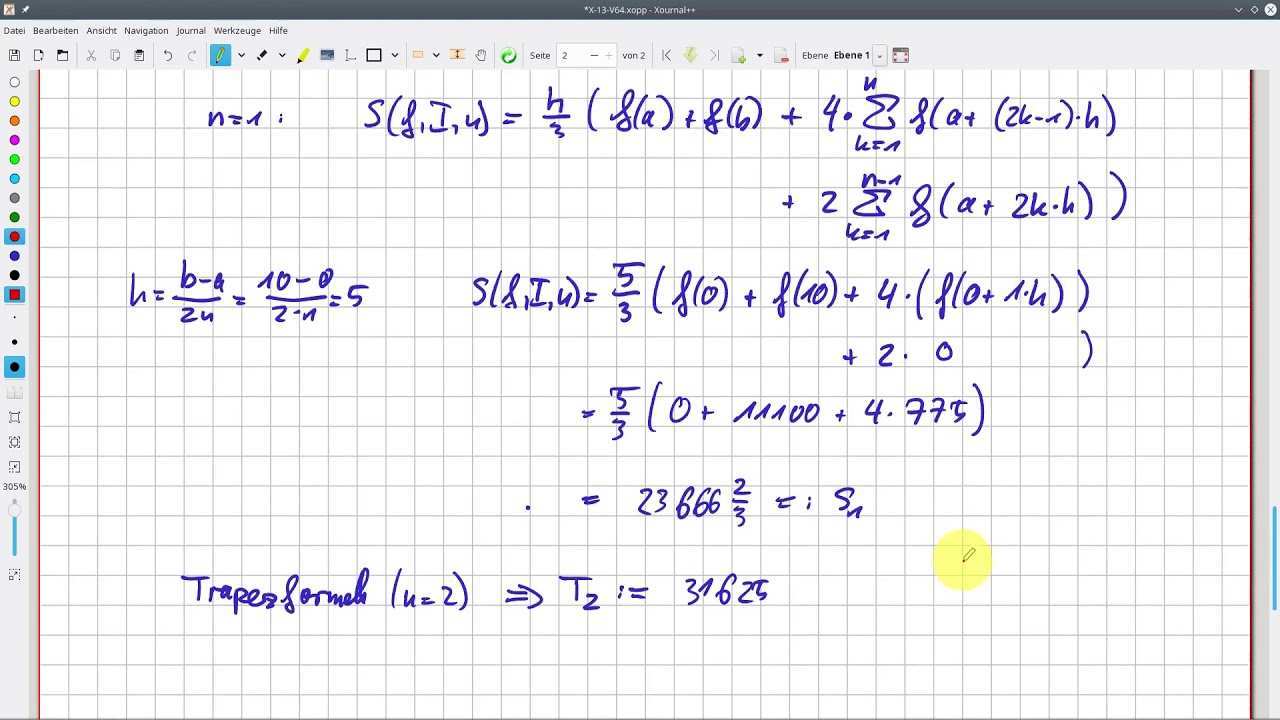 *X-13-V64.xopp - Xournal++
Datei Bearbeiten Ansicht Navigation Journal Werkzeuge Hilfe
Seite 2 von 2 Ebene Ebene 1
305%
n=1: S(f,I,n) = h/3 ( f(a) + f(b) + 4· Σ_{k=1}^{n} f(a+ (2k-1)·h)
+ 2 Σ_{k=1}^{n-1} f(a+ 2k·h) )
h = (b-a)/2n = (10-0)/(2·1) = 5 S(f,I,n) = 5/3 ( f(0) + f(10) + 4·( f(0+1·h) )
+ 2· 0 )
= 5/3 ( 0 + 11100 + 4·775 )
. = 23666 2/3 =: S₁
Trapezformel (n=2) ⇒ T₂ := 31625